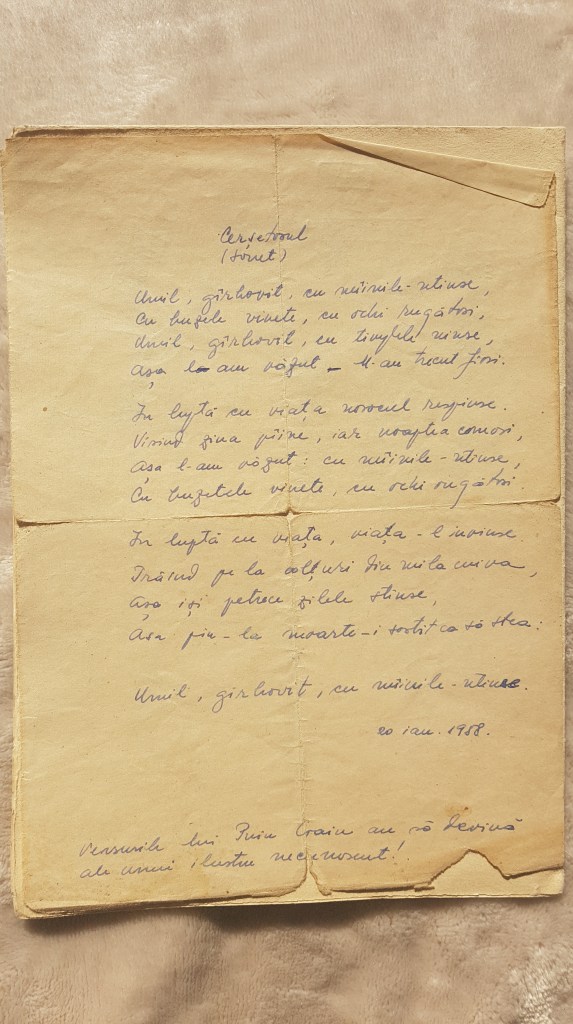 Cerșetorul
(sonet)
Umil, gîrbovit, cu mîinile-ntinse,
Cu buzele vinete, cu ochi rugători,
Umil, gîrbovit, cu tîmplele ninse,
Așa l-am văzut - M-au trecut fiori.
În luptă cu viața norocul respinse.
Visînd ziua pîine, iar noaptea comori,
Așa l-am văzut: cu mîinile-ntinse,
Cu buzele vinete, cu ochi rugători.
În luptă cu viața, viața-l învinse.
Trăind pe la colțuri din mila cuiva,
Așa își petrece zilele stinse,
Așa pîn-la moarte-i sortit ca să stea:
Umil, gîrbovit, cu mîinile-ntinse.
20 ian. 1958.
Versurile lui Puiu au să devină
ale unui ilustru necunoscut!